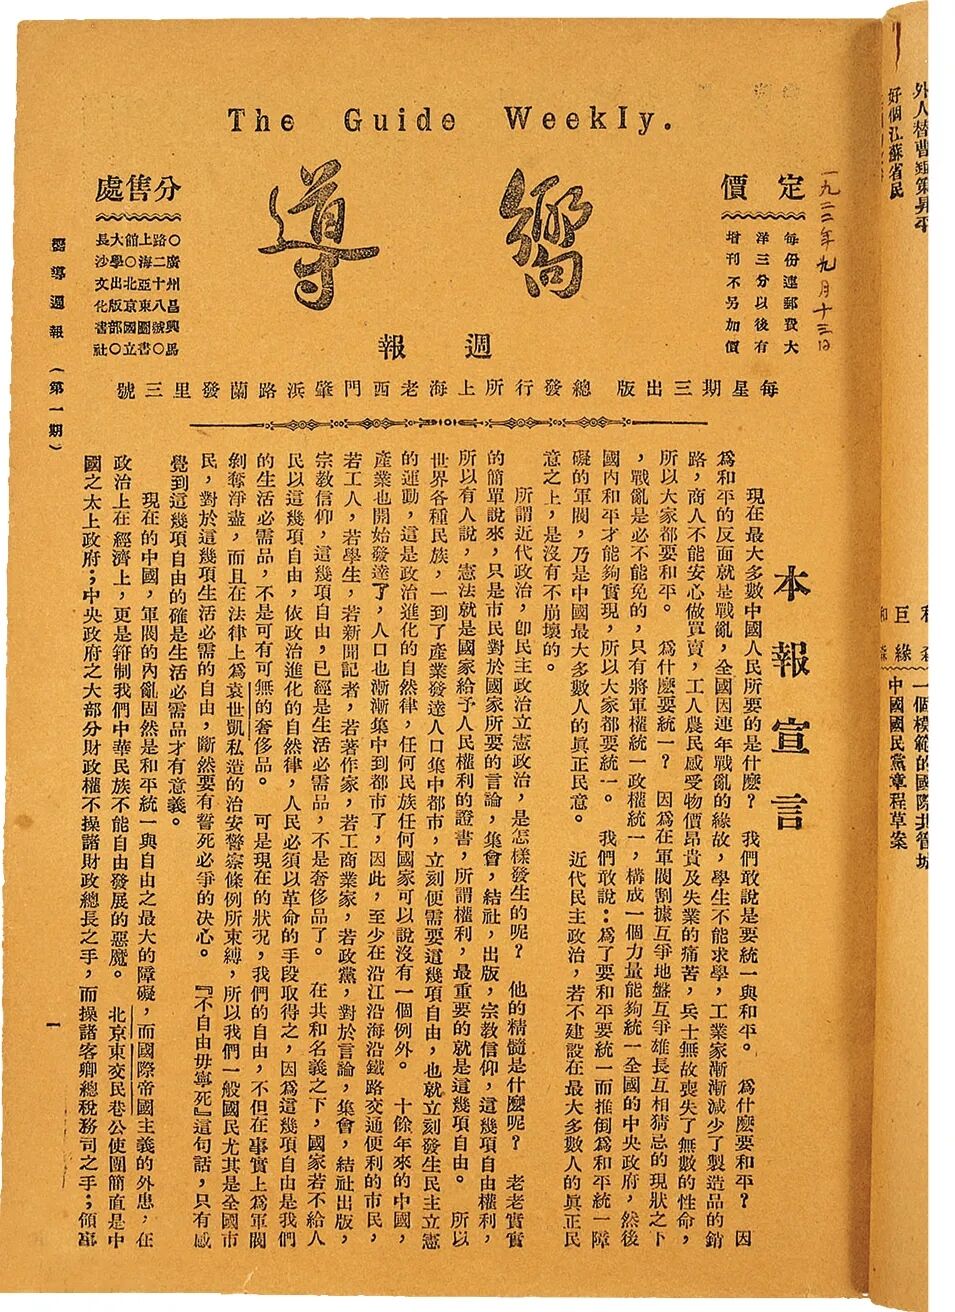 The Guide Weekly.
嚮導
週報
定價
每份連郵費大
洋三分以後有
增刊不另加價
一九二二年九月十三日
分售處
○廣州昌興馬
路二十八號○
上海亞東圖書
館○北京國立
大學出版部○
長沙文化書社
每星期三出版 總發行所上海老西門肇浜路蘭發里三號
本報宣言
現在最大多數中國人民所要的是什麽？ 我們敢說是要統一與和平。 爲什麽要和平？ 因
爲和平的反面就是戰亂，全國因連年戰亂的緣故，學生不能求學，工業家漸漸減少了製造品的銷
路，商人不能安心做買賣，工人農民感受物價昂貴及失業的痛苦，兵士無故喪失了無數的性命，
所以大家都要和平。 爲什麽要統一？ 因爲在軍閥割據互爭地盤互爭雄長互相猜忌的現狀之下
，戰亂是必不能免的，只有將軍權統一政權統一，構成一個力量能夠統一全國的中央政府，然後
國内和平才能夠實現，所以大家都要統一。 我們敢說：爲了要和平要統一而推倒爲和平統一障
礙的軍閥，乃是中國最大多數人的眞正民意。 近代民主政治，若不建設在最大多數人的眞正民
意之上，是沒有不崩壞的。
所謂近代政治，卽民主政治立憲政治，是怎樣發生的呢？ 他的精髓是什麽呢？ 老老實實
的簡單說來，只是市民對於國家所要的言論，集會，結社，出版，宗教信仰，這幾項自由權利，
所以有人說，憲法就是國家給予人民權利的證書，所謂權利，最重要的就是這幾項自由。 所以
世界各種民族，一到了產業發達人口集中都市，立刻便需要這幾項自由，也就立刻發生民主立憲
的運動，這是政治進化的自然律，任何民族任何國家可以說沒有一個例外。 十餘年來的中國，
產業也開始發達了，人口也漸漸集中到都市了，因此，至少在沿江沿海沿鐵路交通便利的市民，
若工人，若學生，若新聞記者，若著作家，若工商業家，若政黨，對於言論，集會，結社出版，
宗教信仰，這幾項自由，已經是生活必需品，不是奢侈品了。 在共和名義之下，國家若不給人
民以這幾項自由，依政治進化的自然律，人民必須以革命的手段取得之，因爲這幾項自由是我們
的生活必需品，不是可有可無的奢侈品。 可是現在的狀況，我們的自由，不但在事實上爲軍閥
剝奪淨盡，而且在法律上爲袁世凱私造的治安警察條例所束縛，所以我們一般國民尤其是全國市
民，對於這幾項生活必需的自由，斷然要有誓死必爭的決心。 『不自由毋寧死』這句話，只有感
覺到這幾項自由的確是生活必需品才有意義。
現在的中國，軍閥的內亂固然是和平統一與自由之最大的障礙，而國際帝國主義的外患，在
政治上在經濟上，更是箝制我們中華民族不能自由發展的惡魔。 北京東交民巷公使團簡直是中
國之太上政府；中央政府之大部分財政權不操諸財政總長之手，而操諸客卿總稅務司之手；領事
嚮導週報 （第一期）
一
外人替曹錕策昇平
好個江蘇省民
巨緣
一個模範的國際北管城
中國國民黨章程草案